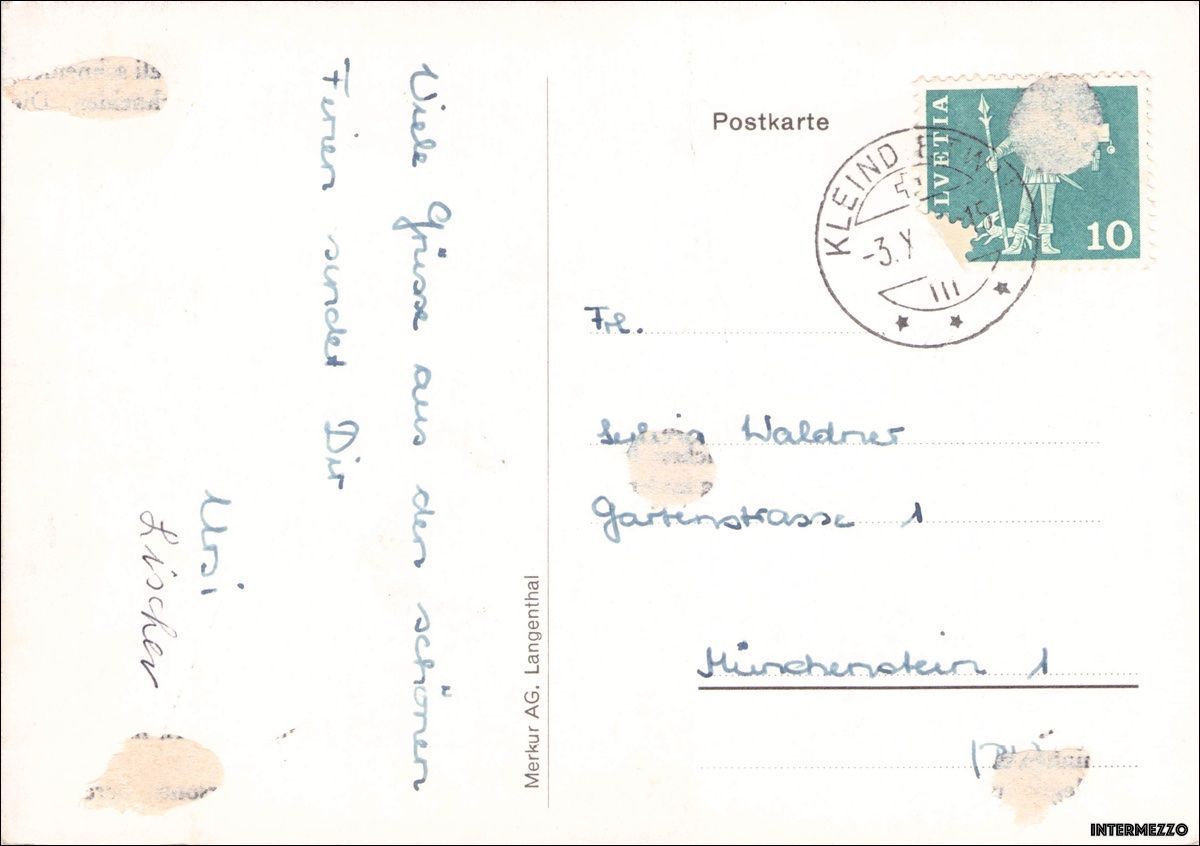 Viele Grüsse aus den schönen
Ferien sendet Dir
Ursi
Lischer
Merkur AG. Langenthal
Postkarte
HELVETIA
10
KLEIND
-3.X
-15
Frl.
Sylvia Waldner
Gartenstrasse 1
Münchenstein 1
INTERMEZZO